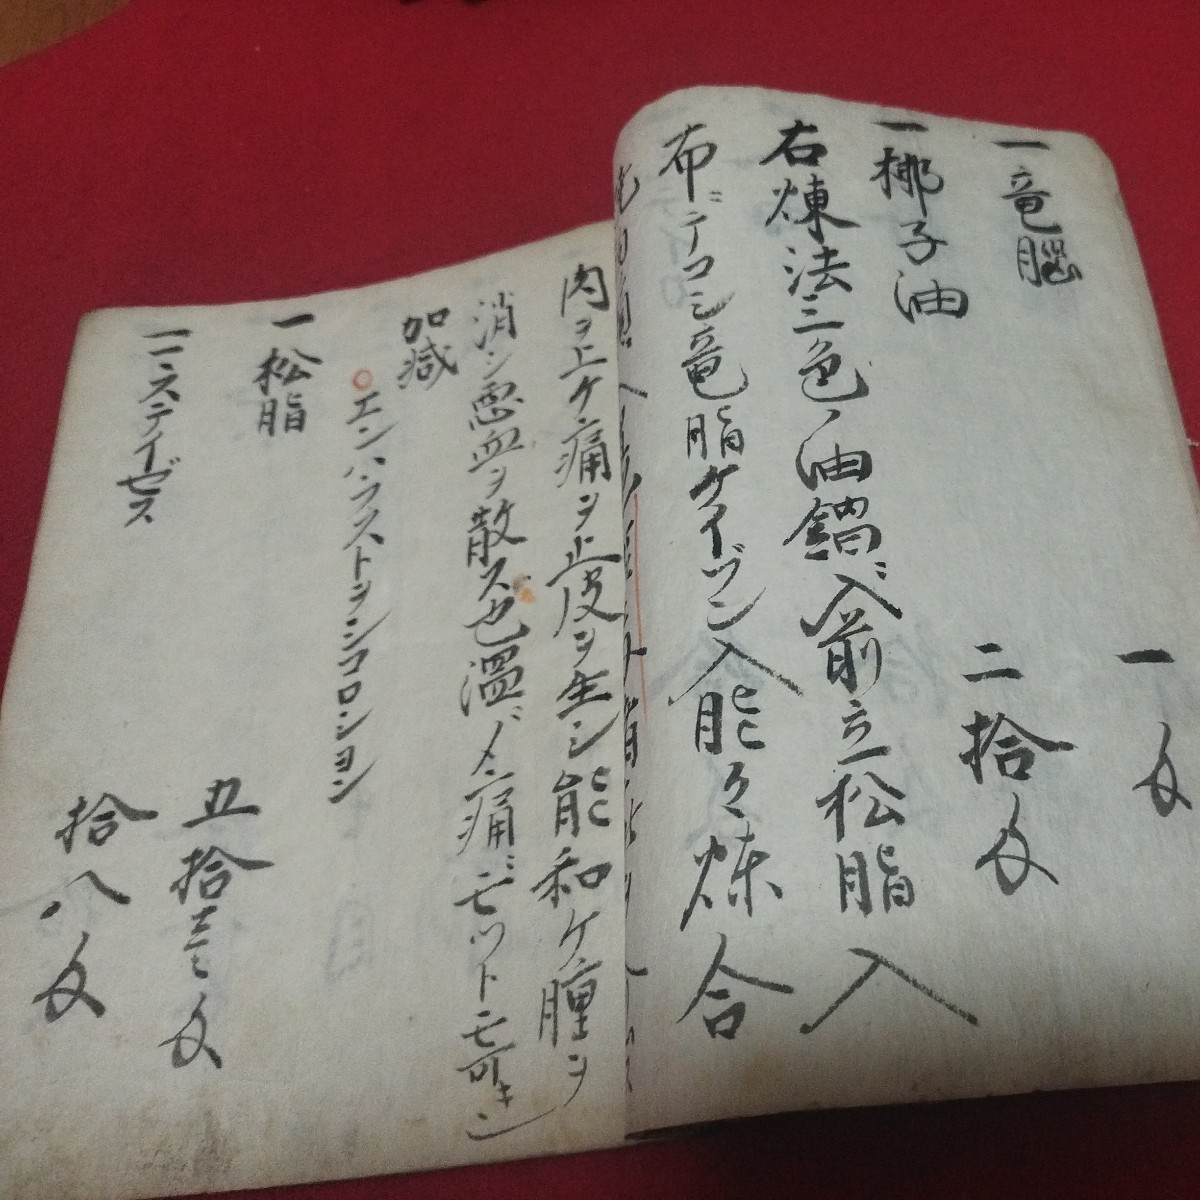 一竜脳 一匁
一椰子油 二拾匁
右煉法三色ノ油鍋ニ入煎立松脂入
布ニテコシ竜脂ケイヅン入能々煉合
肉ヲ上ケ痛ヲ止皮ヲ生シ能和ケ腫ヲ
消シ悪血ヲ散ス也温メ痛ニモツトモ可キシ
加減
○エンハラストヲシコロシヨン
一松脂 五拾壱匁
一ミステイゼス 拾八匁